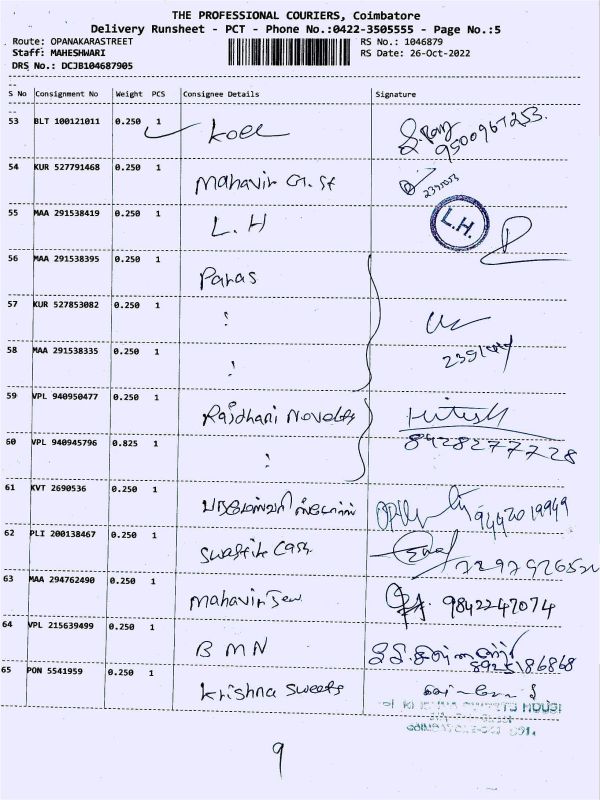 THE PROFESSIONAL COURIERS, Coimbatore
Delivery Runsheet - PCT - Phone No.:0422-3505555 - Page No.:5
Route: OPANAKARASTREET RS No.: 1046879
Staff: MAHESHWARI RS Date: 26-Oct-2022
DRS No.: DCJB104687905
S No Consignment No Weight PCS Consignee Details Signature
53 BLT 100121011 0.250 1 9500967253
54 KUR 527791468 0.250 1 Mahavir G. St
55 MAA 291538419 0.250 1 L.H L.H.
56 MAA 291538395 0.250 1 Paras
57 KUR 527853082 0.250 1
58 MAA 291538335 0.250 1
59 VPL 940950477 0.250 1 Rajdhani Novelty Hitesh
8428277728
60 VPL 940945796 0.825 1
61 KVT 2690536 0.250 1 9442019949
62 PLI 200138467 0.250 1 Swastik
63 MAA 294762490 0.250 1 Mahavir Jew 9842247074
64 VPL 215639499 0.250 1 B M N
8925186868
65 PON 5541959 0.250 1 Krishna Sweets
9